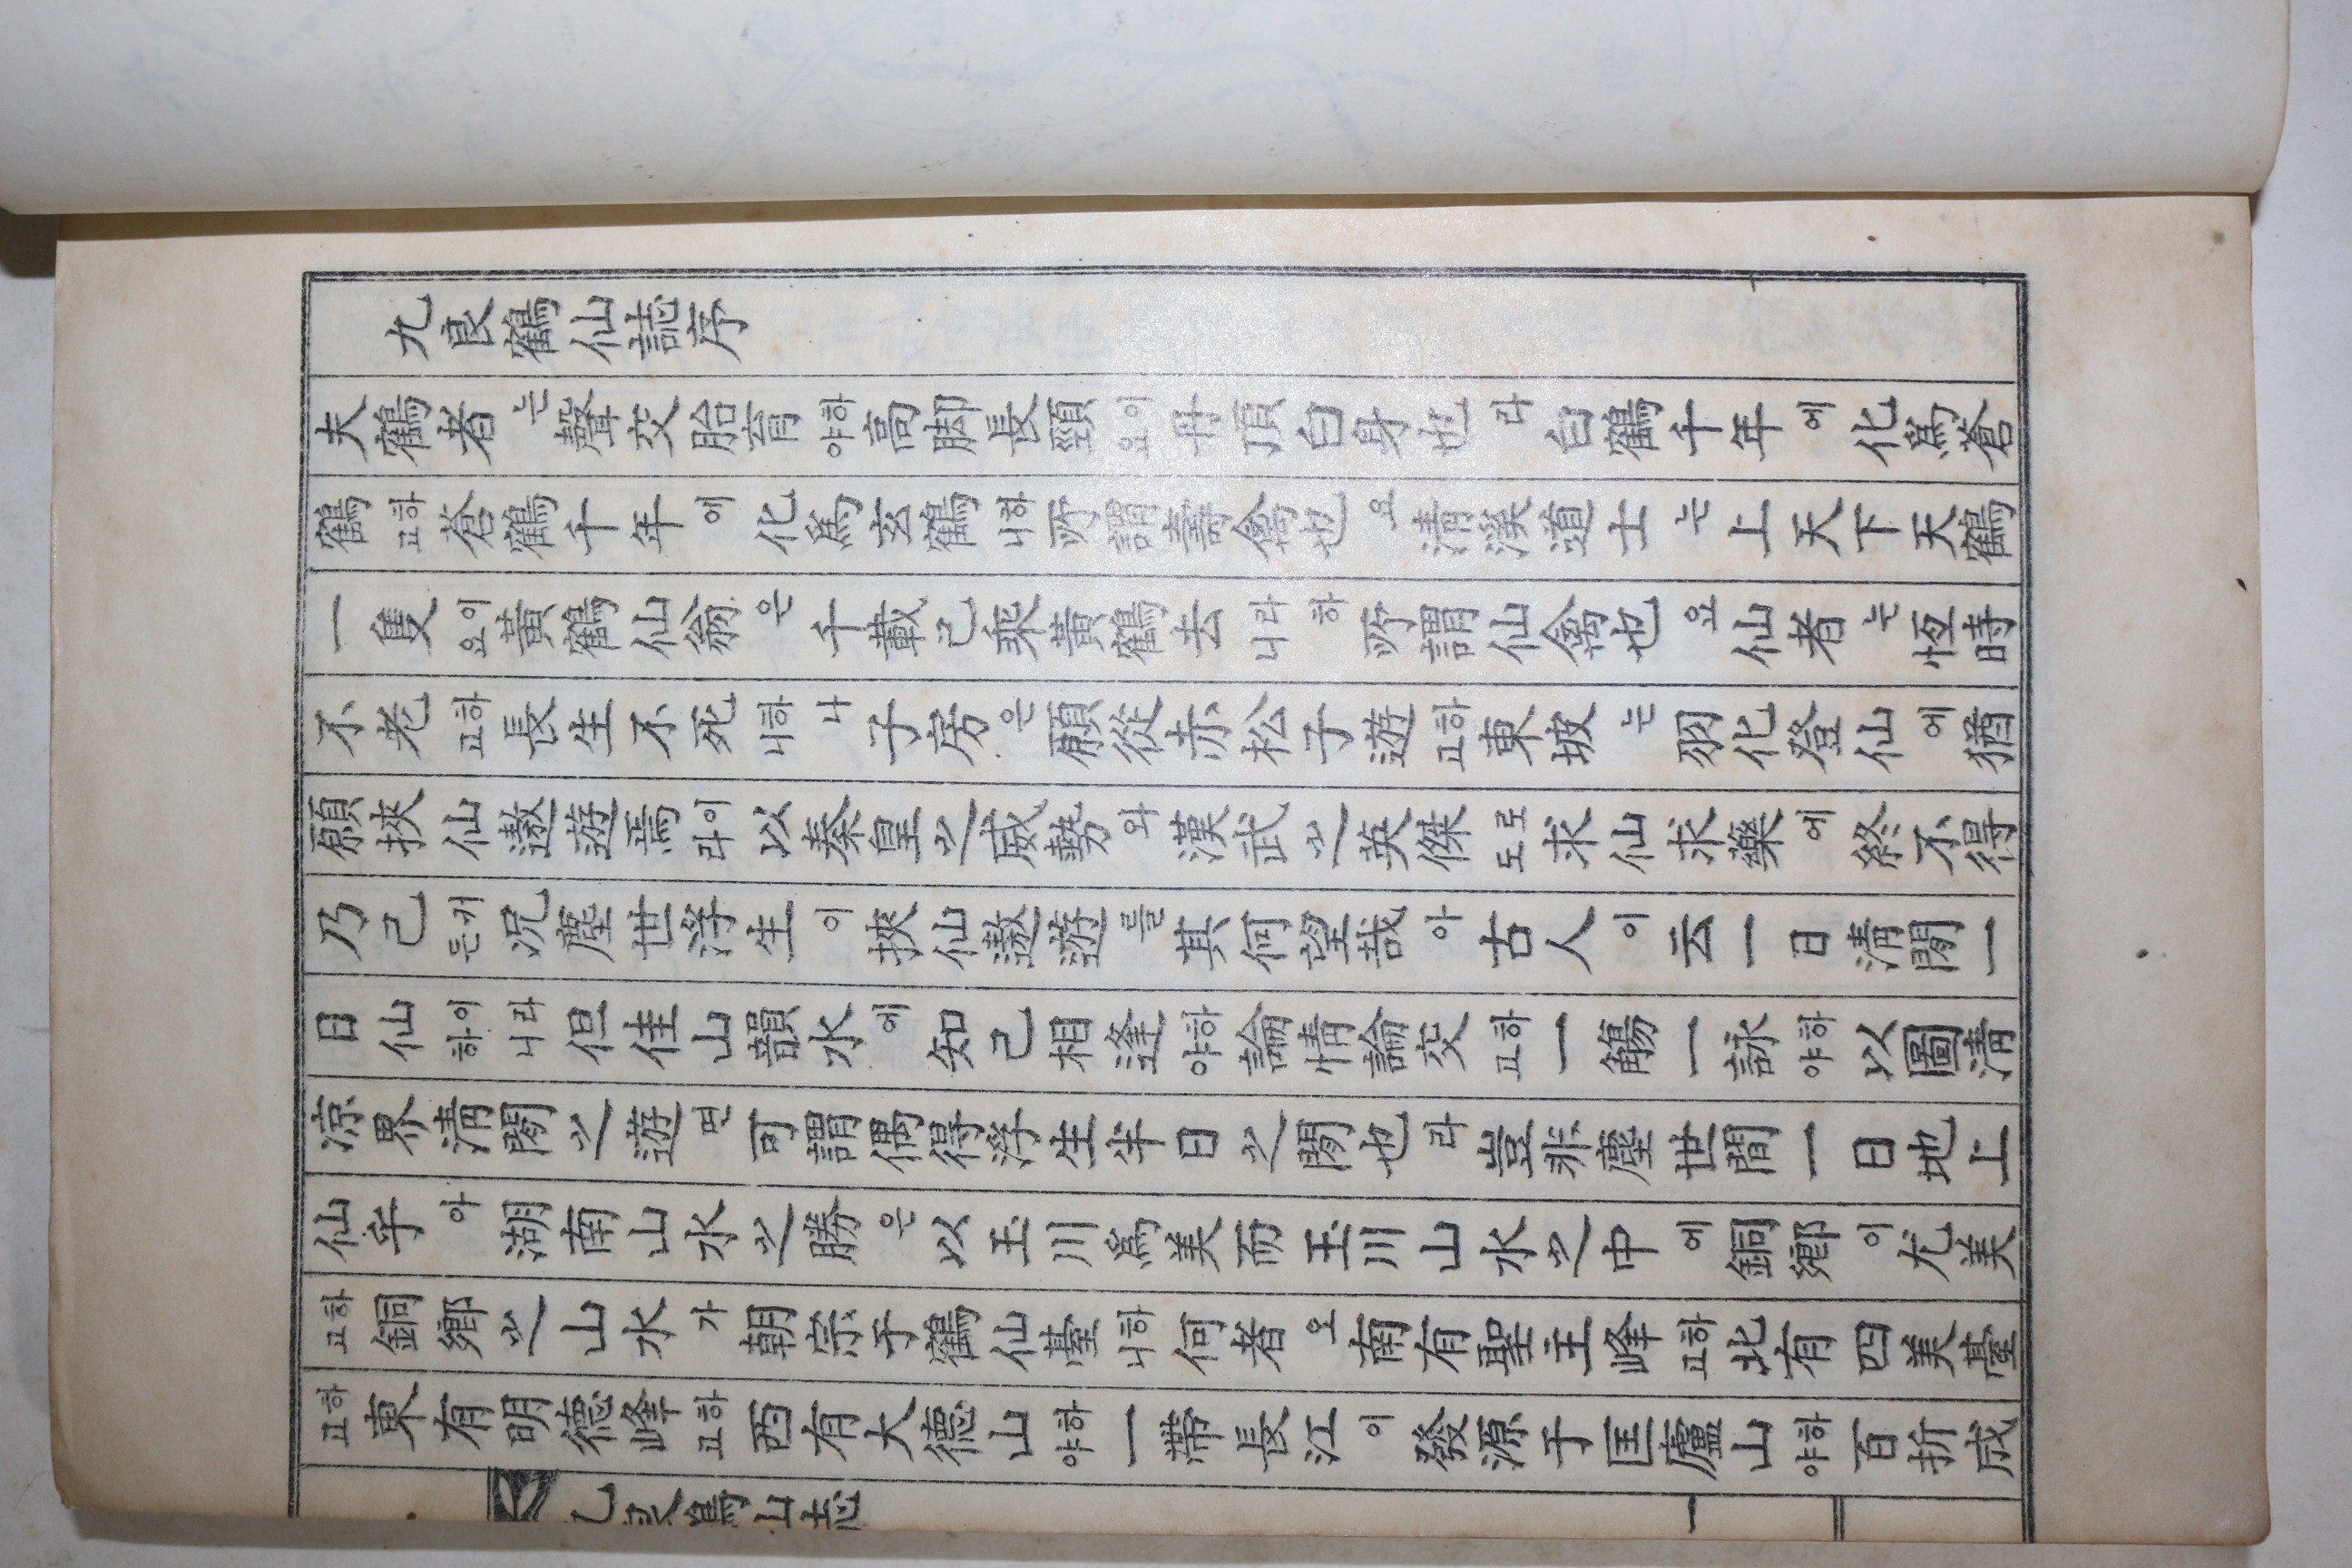 九良鶴仙誌序
夫鶴者는聲交胎育하야高脚長頸이요丹頂白身也라白鶴千年에化爲蒼
鶴하고蒼鶴千年에化爲玄鶴하니所謂壽禽也요淸溪道士는上天下天鶴
一隻이요黃鶴仙翁은千載己乘黃鶴去라니하所謂仙禽也요仙者는恆時
不老하고長生不死하니나子房은願從赤松子遊하고東坡는羽化登仙에猶
願挾仙遨遊焉이라以秦皇之威勢와漢武之英傑로도求仙求藥에終不得
乃己커든况塵世浮生이挾仙遨遊를其何望哉아古人이云一日淸閒一
日仙이라하니但佳山韻水에知己相逢하야論情論交하고一觴一詠하야以圖淸
凉界淸閒之遊면可謂偶得浮生半日之閒也라豈非塵世間一日地上
仙乎아湖南山水之勝은以玉川爲美而玉川山水之中에銅鄕이尤美
하고銅鄕之山水가朝宗于鶴仙臺하니何者오南有聖主峰하고北有四美臺
하고東有明德峰하고西有大德山하야一帶長江이發源于匡廬山하야百折成
九良鶴山志
一